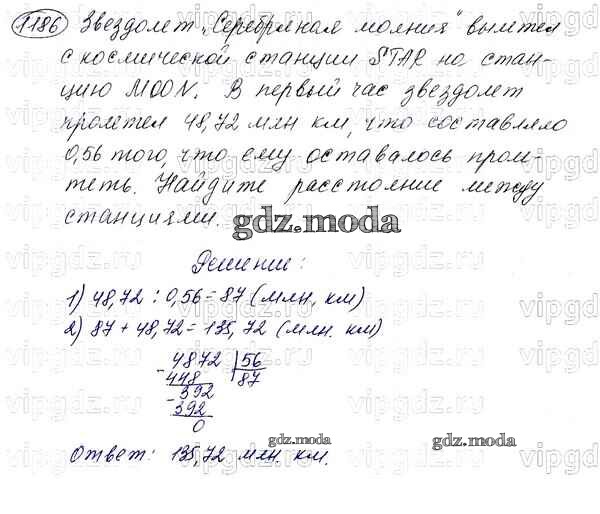 1186 Звездолет „Серебряная молния" вылетел
с космической станции STAR на стан-
цию MOON. В первый час звездолет
пролетел 48,72 млн км, что составляло
0,56 того, что ему оставалось проле-
теть. Найдите расстояние между
станциями.
gdz.moda
Решение:
1) 48,72 : 0,56 = 87 (млн, км)
2) 87 + 48,72 = 135,72 (млн. км)
- 4872 | 56
448 87
- 392
392
0
gdz.moda
Ответ: 135,72 млн. км.
gdz.moda